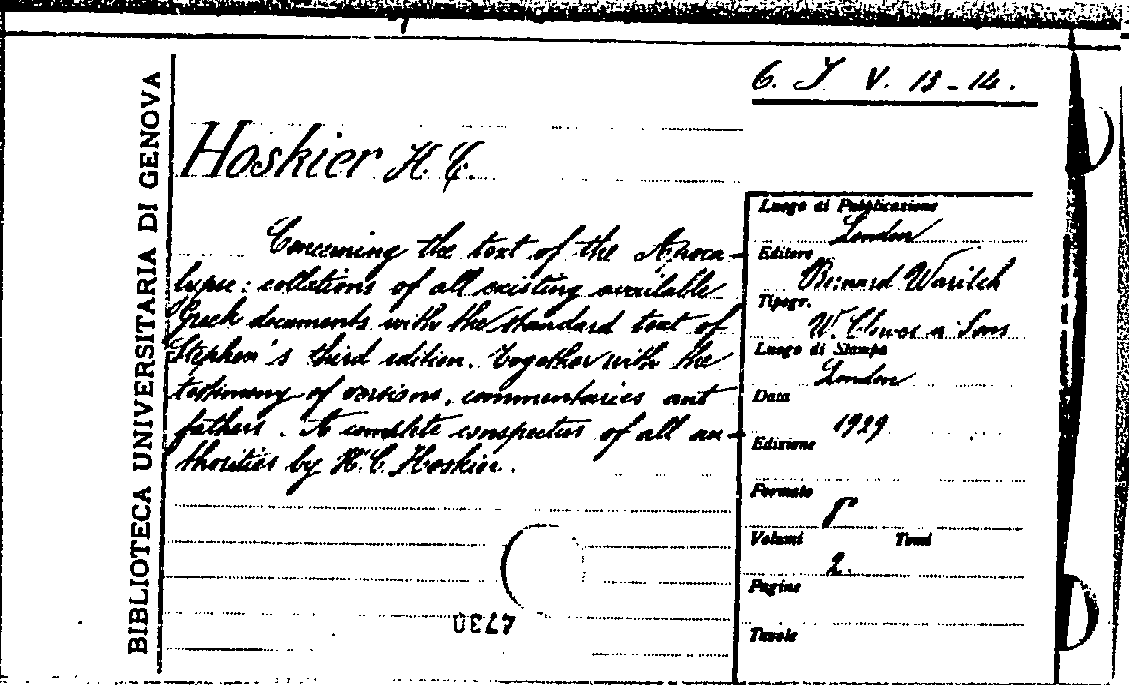 6. I V. 13-14.
BIBLIOTECA UNIVERSITARIA DI GENOVA
Hoskier H. C.
Concerning the text of the Apoca-
lypse: collations of all existing available
Greek documents with the standard text of
Stephen's third edition. Together with the
testimony of versions, commentaries and
fathers. A complete conspectus of all au-
thorities by H. C. Hoskier.
Luogo di Pubblicazione
London
Editore
Bernard Waritch
Tipogr.
W. Clowes a. Sons
Luogo di Stampa
London
Data
1929
Edizione
Formato
8°
Volumi Tomi
2.
Pagine
Tavole
4730